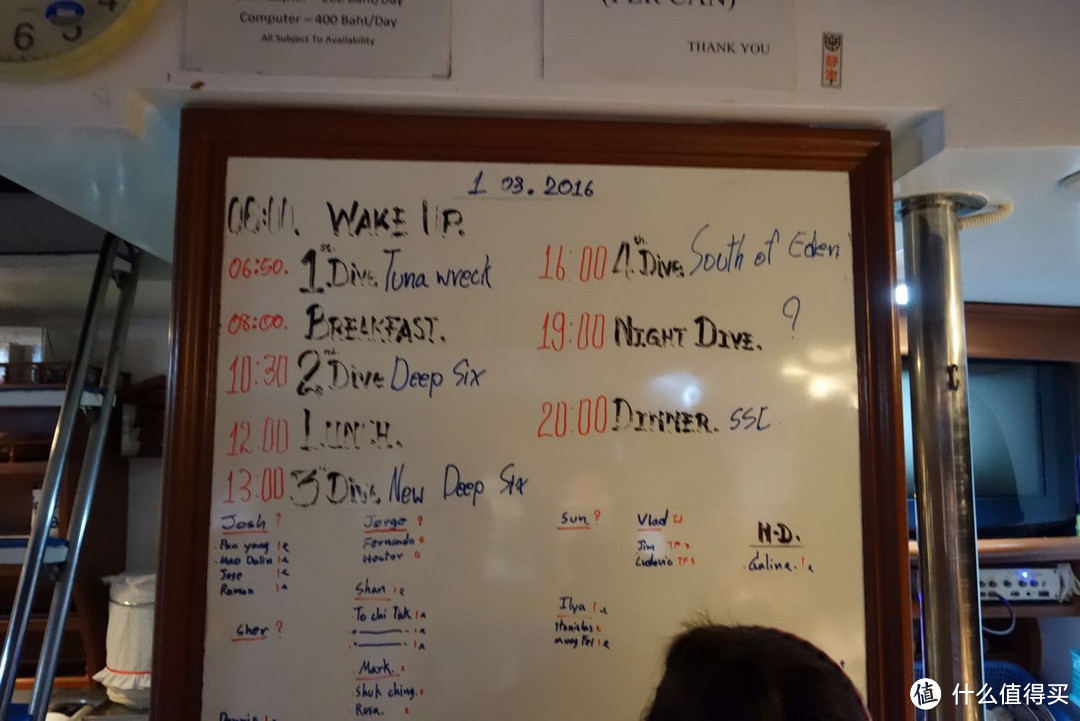 6
Computer – 400 Baht/Day
All Subject To Availability
(PER CAN)
THANK YOU
1 03.2016
06:00. WAKE UP.
06:50. 1st Dive. Tuna wreck
08:00. BREAKFAST.
10:30 2nd Dive Deep Six
12:00 LUNCH.
13:00 3rd Dive New Deep Six
16:00 4th Dive. South of Eden
19:00 NIGHT DIVE. ?
20:00 DINNER. SSC
Josh ?
Pan yong
Hao Dalin
Jose
Ramon
Cher ?
Jorge ?
Fernando
Hector
Shan
To chi Tak
Mark.
Shuk ching.
Rosa.
Sun ?
Ilya
Stanislas
Vlad
Jim
Ludovic
N.D.
Galina.
值 什么值得买